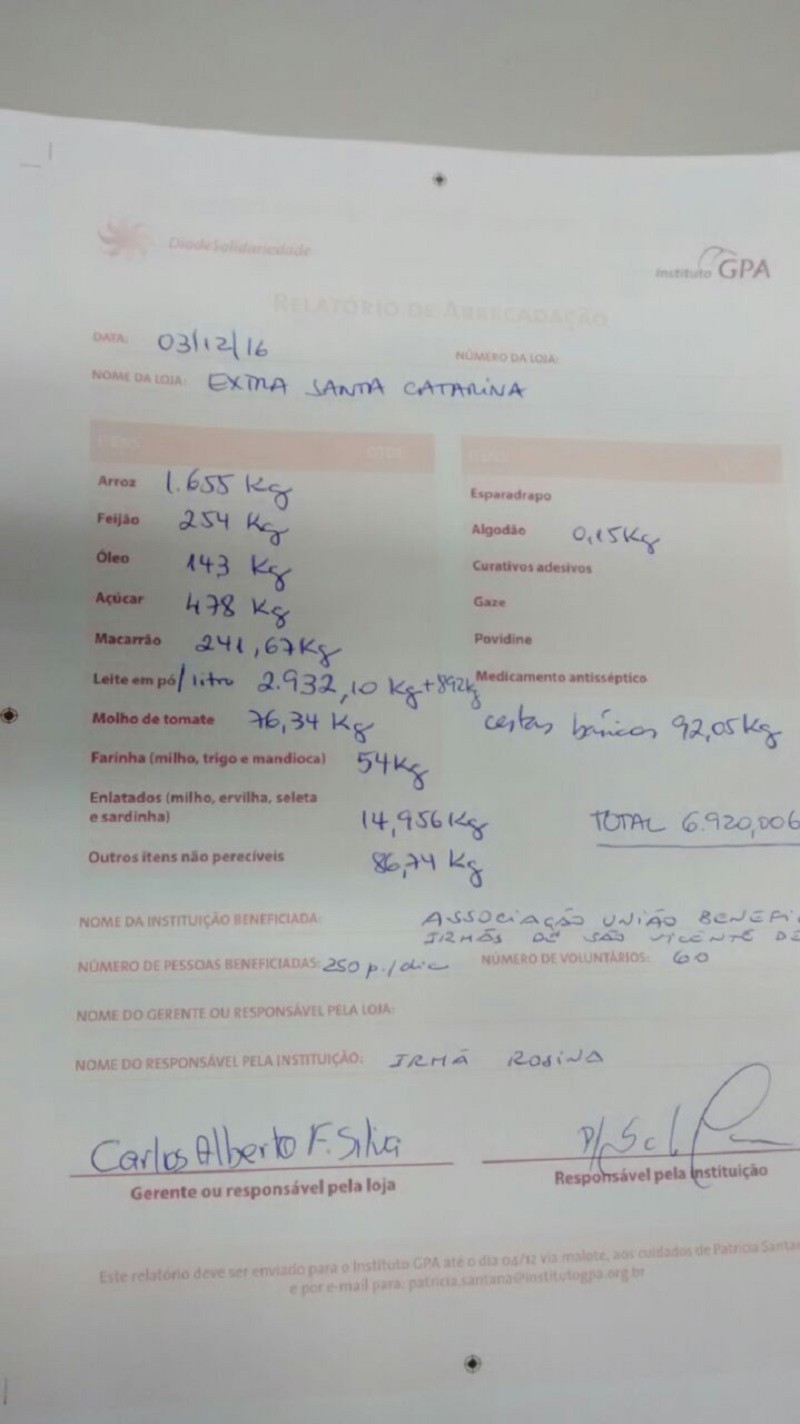 DiadeSolidariedade
Instituto GPA
RELATÓRIO DE ARRECADAÇÃO
DATA: 03/12/16
NÚMERO DA LOJA:
NOME DA LOJA: EXTRA SANTA CATARINA
ITENS QTDE
Arroz 1.655 Kg
Feijão 254 Kg
Óleo 143 Kg
Açúcar 478 Kg
Macarrão 241,67Kg
Leite em pó/litro 2.932,10 Kg+892kg
Molho de tomate 76,34 Kg
Farinha (milho, trigo e mandioca) 54Kg
Enlatados (milho, ervilha, seleta
e sardinha) 14,956Kg
Outros itens não perecíveis 86,74 Kg
ITENS
Esparadrapo
Algodão 0,15Kg
Curativos adesivos
Gaze
Povidine
Medicamento antisséptico
cestas básicas 92,05Kg
TOTAL 6.920,006
NOME DA INSTITUIÇÃO BENEFICIADA: ASSOCIAÇÃO UNIÃO BENEFI
IRMÃS DE SÃO VICENTE DE
NÚMERO DE PESSOAS BENEFICIADAS: 250 p./dia NÚMERO DE VOLUNTÁRIOS: 60
NOME DO GERENTE OU RESPONSÁVEL PELA LOJA:
NOME DO RESPONSÁVEL PELA INSTITUIÇÃO: IRMÃ ROSINA
Carlos Alberto F. Silva
Gerente ou responsável pela loja
Responsável pela instituição
Este relatório deve ser enviado para o Instituto GPA até o dia 04/12 via malote, aos cuidados de Patricia Santa
e por e-mail para: patricia.santana@institutogpa.org.br